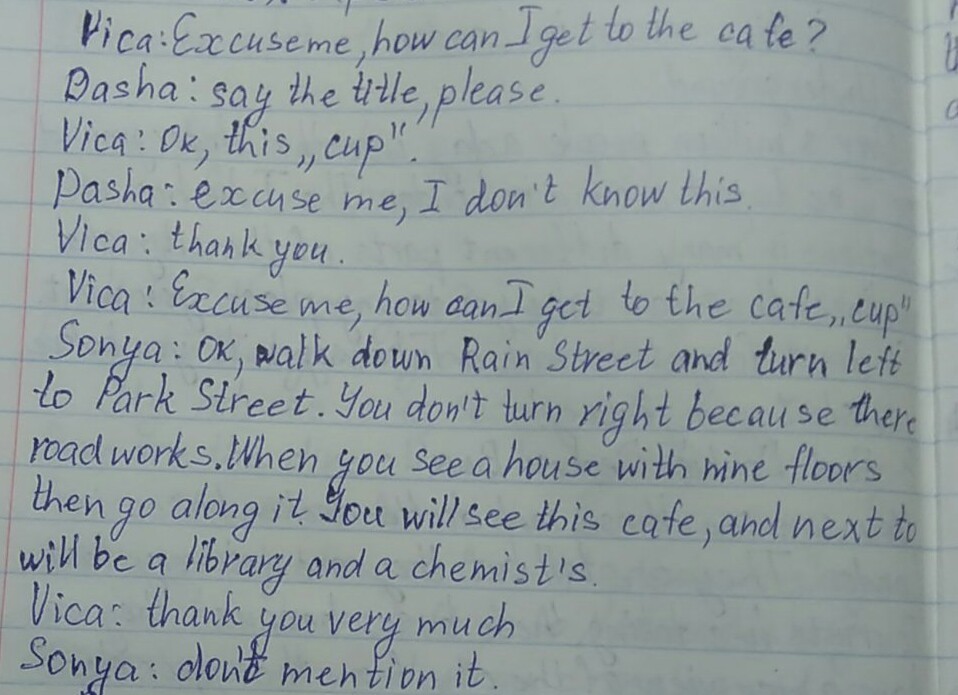 Vica: Excuse me, how can I get to the cafe?
Dasha: say the title, please.
Vica: Ok, this „cup".
Dasha: excuse me, I don't know this.
Vica: thank you.
Vica: Excuse me, how can I get to the cafe „cup"
Sonya: OK, walk down Rain Street and turn left
to Park Street. You don't turn right because there
road works. When you see a house with nine floors
then go along it. You will see this cafe, and next to
will be a library and a chemist's.
Vica: thank you very much
Sonya: don't mention it.